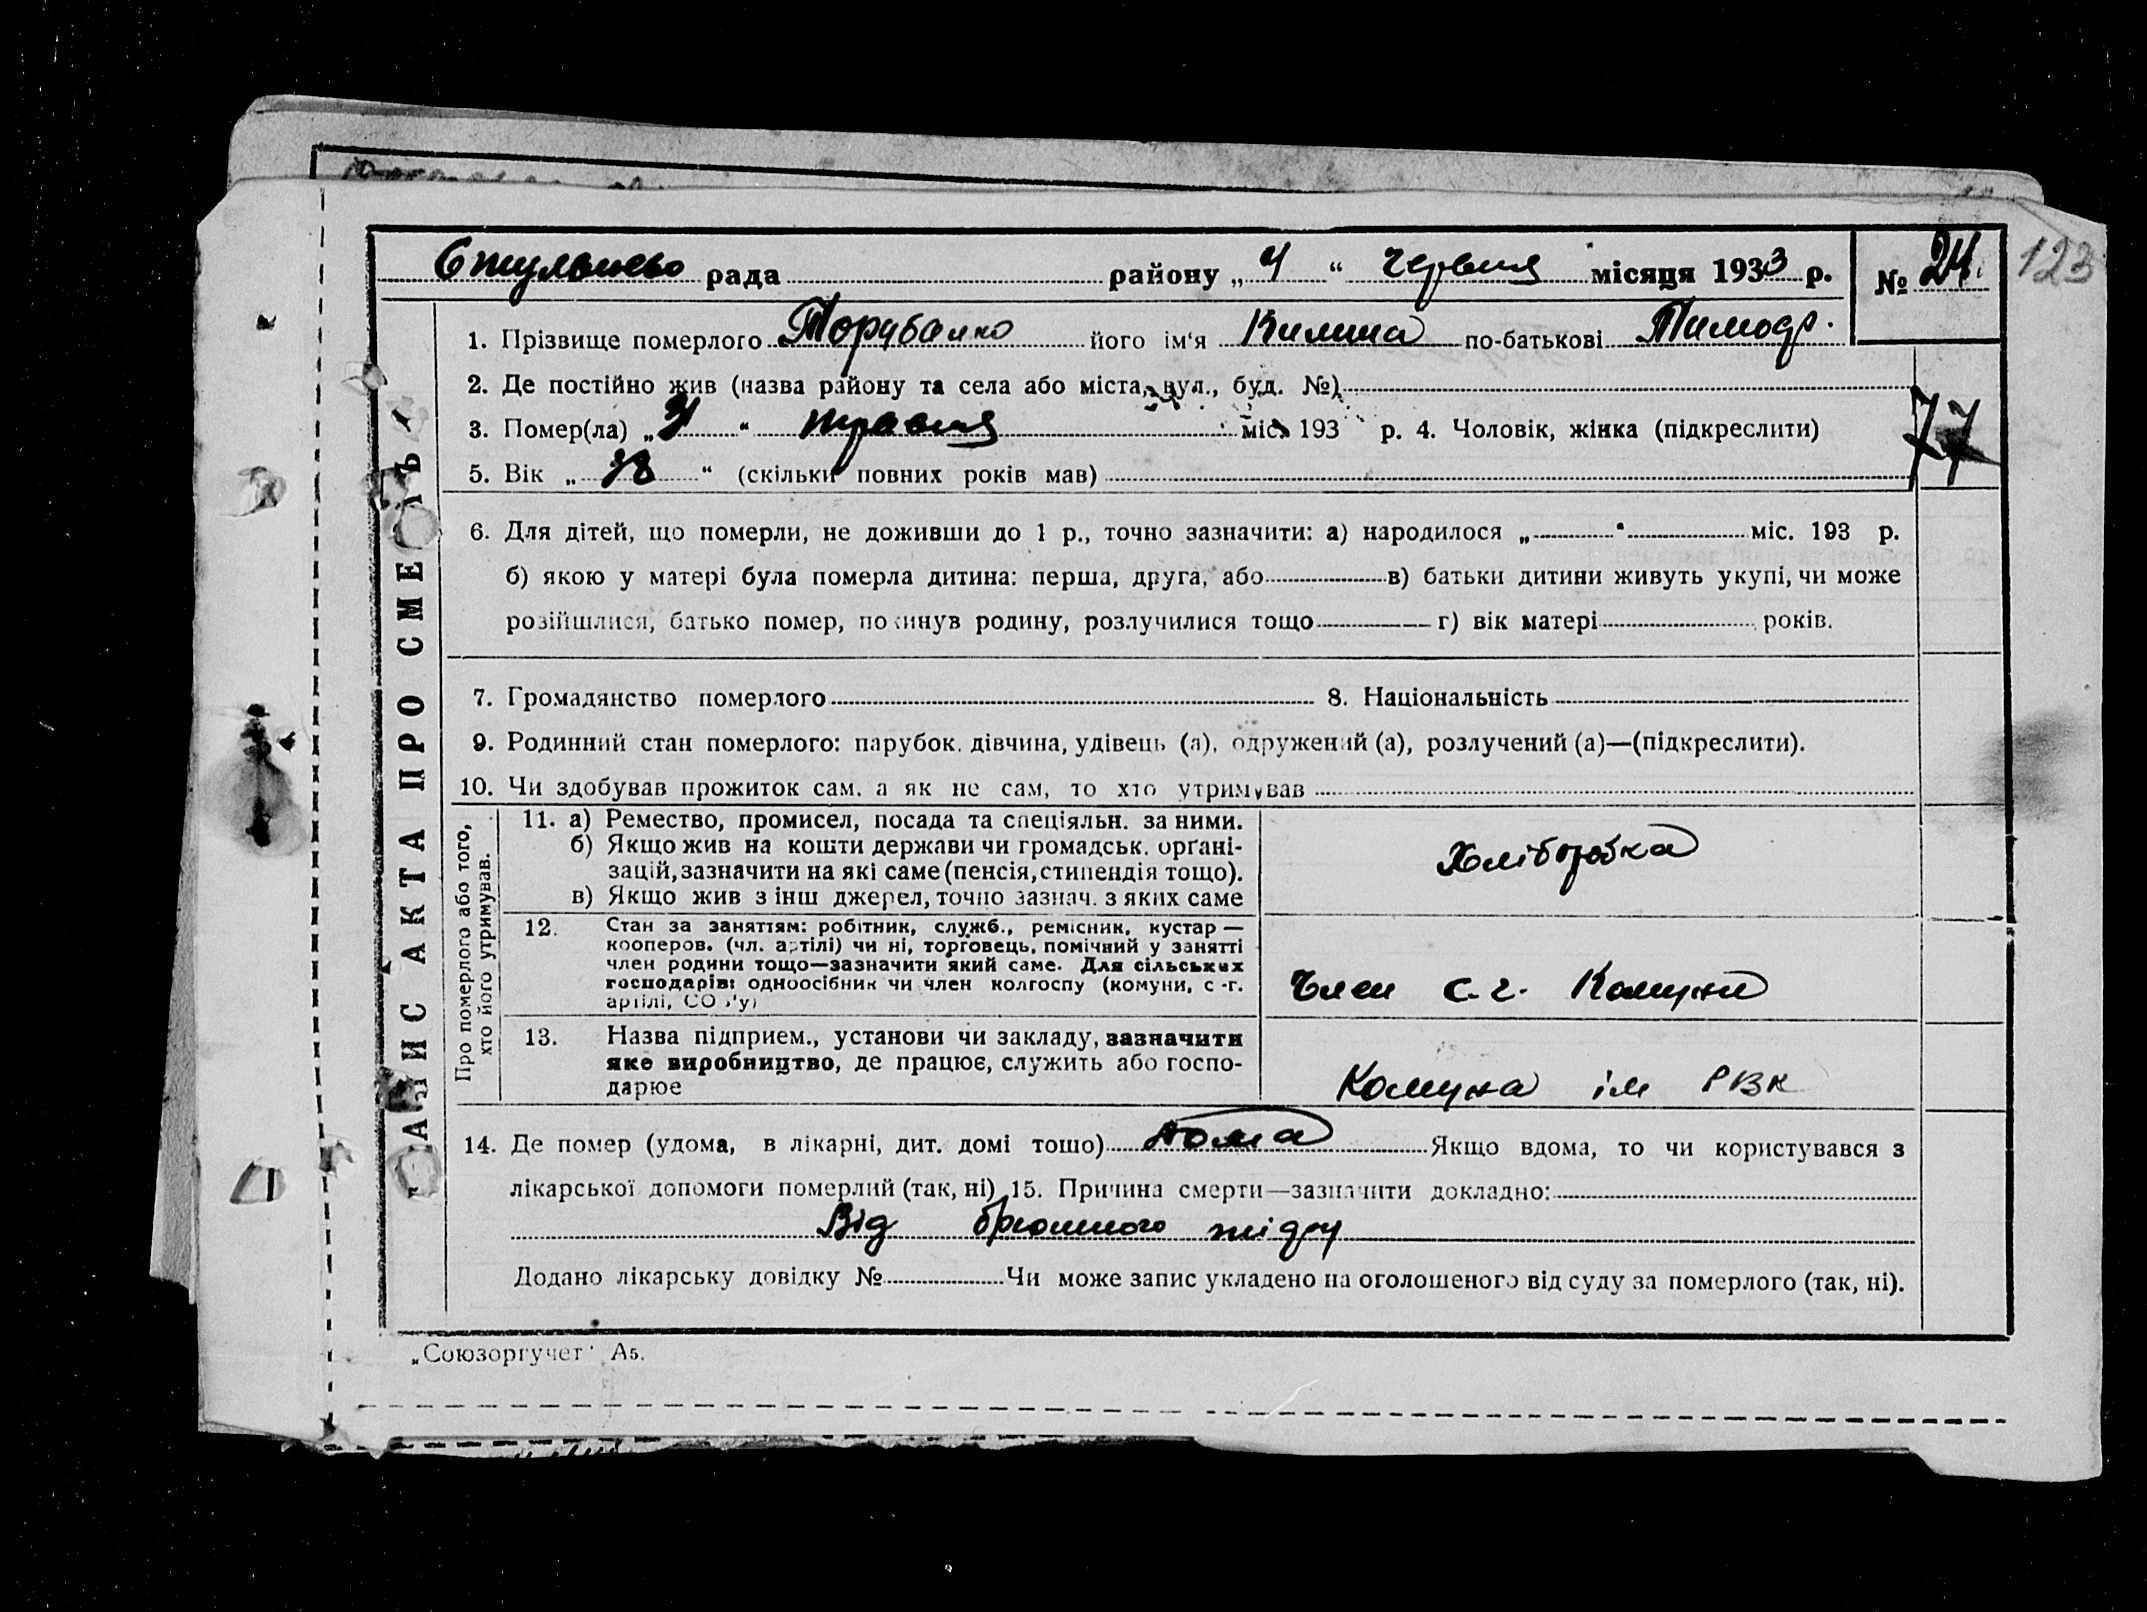 рада району „4“ Червня місяця 1933 р. № 24. 123
1. Прізвище померлого його ім'я Килина по-батькові Тимофр.
2. Де постійно жив (назва району та села або міста, вул., буд. №)
3. Помер(ла) „ “ травня міс. 193 р. 4. Чоловік, жінка (підкреслити)
77
5. Вік „38“ (скільки повних років мав)
6. Для дітей, що померли, не доживши до 1 р., точно зазначити: а) народилося „ “ міс. 193 р.
б) якою у матері була померла дитина: перша, друга, або в) батьки дитини живуть укупі, чи може
розійшлися, батько помер, покинув родину, розлучилися тощо г) вік матері років.
7. Громадянство померлого 8. Національність
9. Родинний стан померлого: парубок, дівчина, удівець (а), одружений (а), розлучений (а)—(підкреслити).
10. Чи здобував прожиток сам, а як не сам, то хто утримував
ЗАПИС АКТА ПРО СМЕРТЬ
Про померлого або того,
хто його утримував.
11. а) Ремество, промисел, посада та спеціяльн. за ними.
б) Якщо жив на кошти держави чи громадськ. орґані-
зацій, зазначити на які саме (пенсія, стипендія тощо).
в) Якщо жив з інш джерел, точно зазнач. з яких саме
Хліборобка
12. Стан за заняттям: робітник, служб., ремісник, кустар —
кооперов. (чл. артілі) чи ні, торговець, помічний у занятті
член родини тощо—зазначити який саме. Для сільських
господарів: одноосібник чи член колгоспу (комуни, с.-г.
артілі, СОЗ'у)
Член с.г. Комуни
13. Назва підприєм., установи чи закладу, зазначити
яке виробництво, де працює, служить або госпо-
дарює
Комуна ім РВК
14. Де помер (удома, в лікарні, дит. домі тощо) дома Якщо вдома, то чи користувався з
лікарської допомоги померлий (так, ні) 15. Причина смерти—зазначити докладно:
Від брюшного тіфу
Додано лікарську довідку № Чи може запис укладено на оголошеного від суду за померлого (так, ні).
„Союзоргучет" А5.